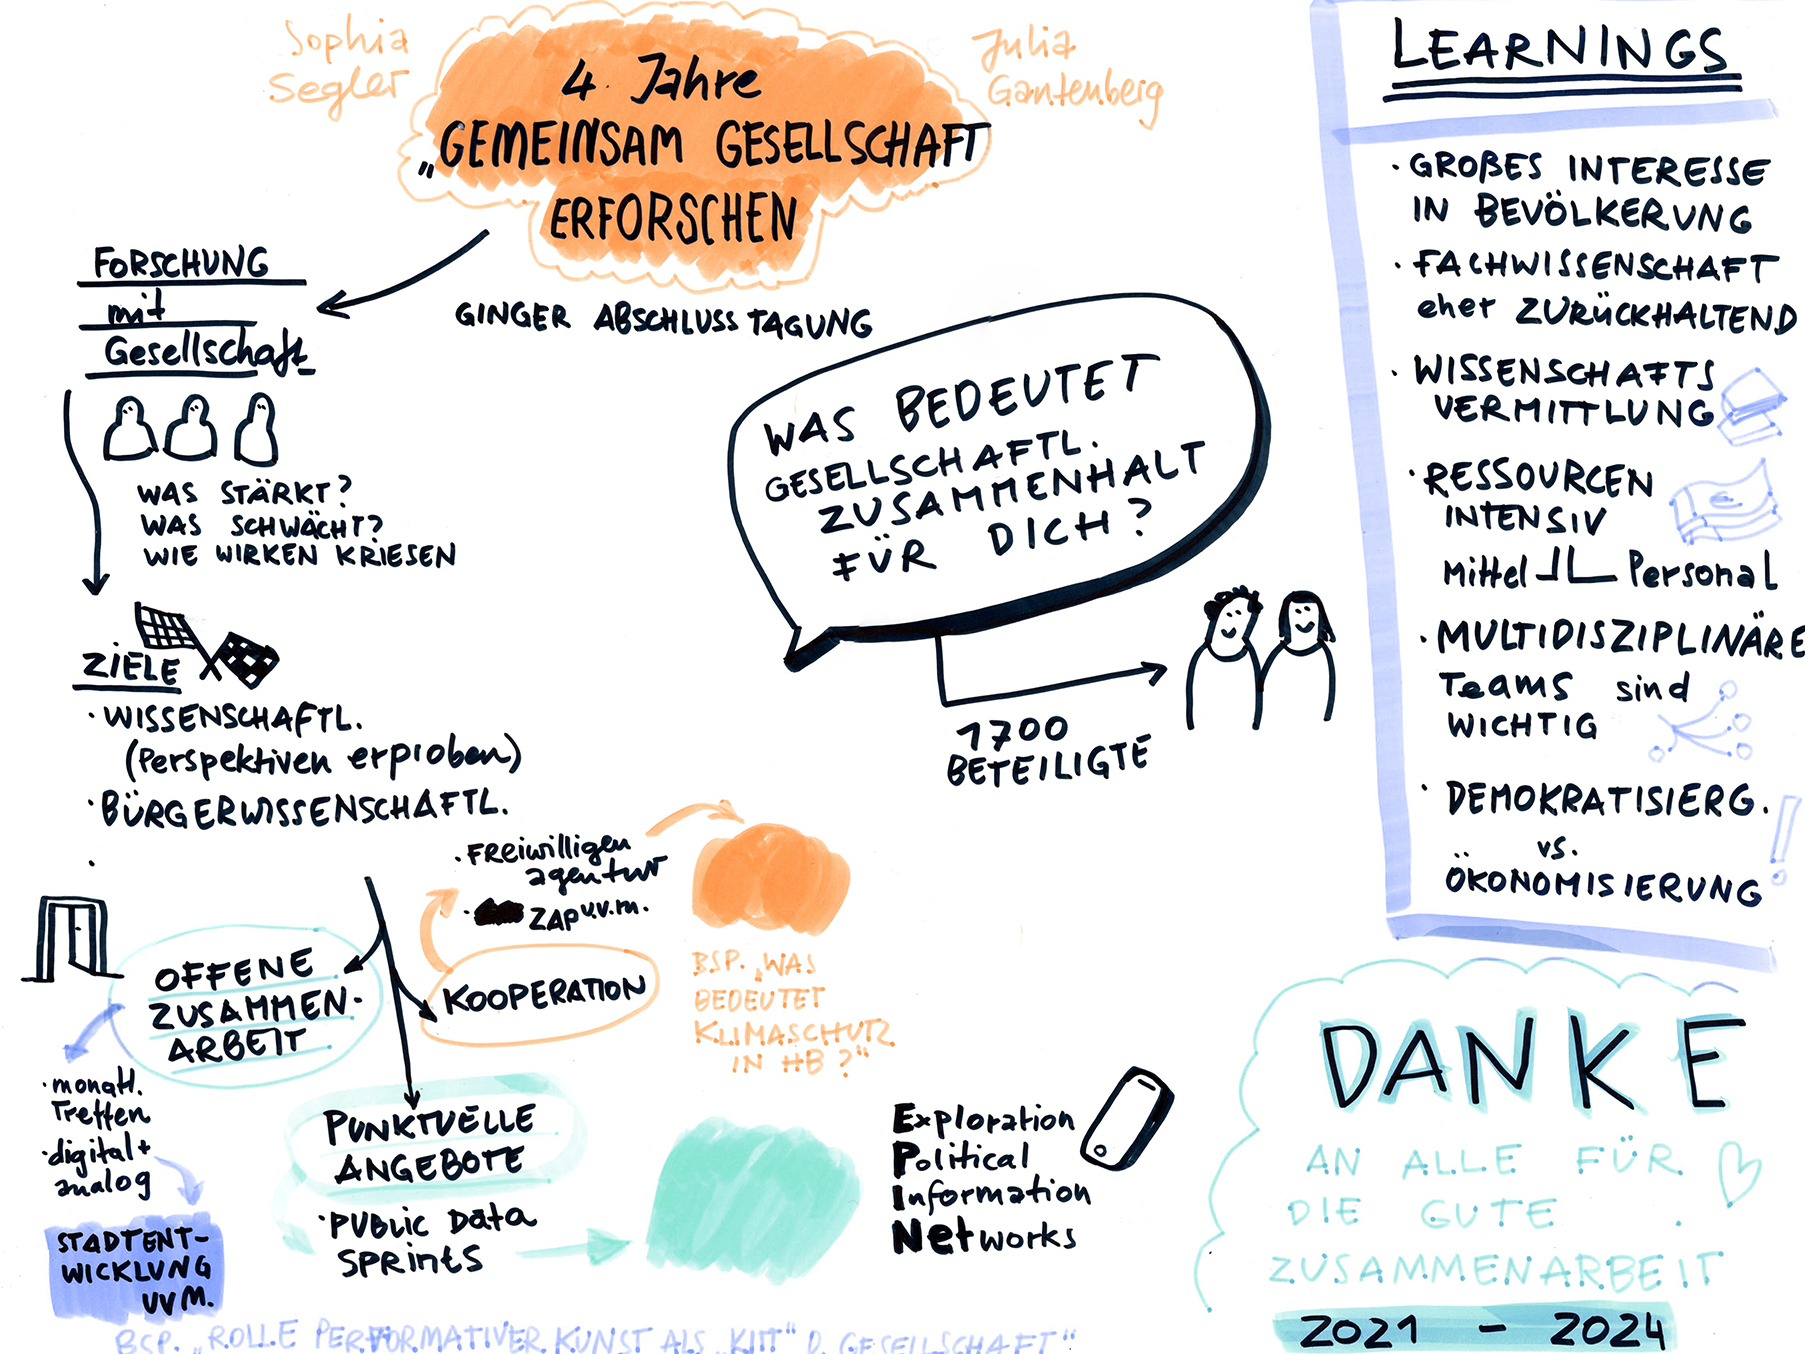 Sophia
Segler
4 Jahre
„GEMEINSAM GESELLSCHAFT
ERFORSCHEN
Julia
Gantenberg
GINGER ABSCHLUSS TAGUNG
FORSCHUNG
mit
Gesellschaft
WAS STÄRKT?
WAS SCHWÄCHT?
WIE WIRKEN KRIESEN
ZIELE
· WISSENSCHAFTL.
(Perspektiven erproben)
· BÜRGERWISSENSCHAFTL.
·
OFFENE
ZUSAMMEN-
ARBEIT
· monatl.
Treffen
· digital +
analog
STADTENT-
WICKLUNG
UVM.
BSP. „ROLLE PERFORMATIVER KUNST ALS „KITT" D. GESELLSCHAFT"
KOOPERATION
· Freiwilligen
agentur
· ZAP u.v.m.
BSP. „WAS
BEDEUTET
KLIMASCHUTZ
IN HB?"
PUNKTUELLE
ANGEBOTE
· PUBLIC Data
SPRINTS
WAS BEDEUTET
GESELLSCHAFTL.
ZUSAMMENHALT
FÜR DICH?
1700
BETEILIGTE
Exploration
Political
Information
Networks
LEARNINGS
· GROẞES INTERESSE
IN BEVÖLKERUNG
· FACHWISSENSCHAFT
eher ZURÜCKHALTEND
· WISSENSCHAFTS
VERMITTLUNG
· RESSOURCEN
INTENSIV
Mittel Personal
· MULTIDISZIPLINÄRE
Teams sind
WICHTIG
· DEMOKRATISIERG.
vs.
ÖKONOMISIERUNG
!
DANKE
AN ALLE FÜR
DIE GUTE
ZUSAMMENARBEIT
2021 - 2024